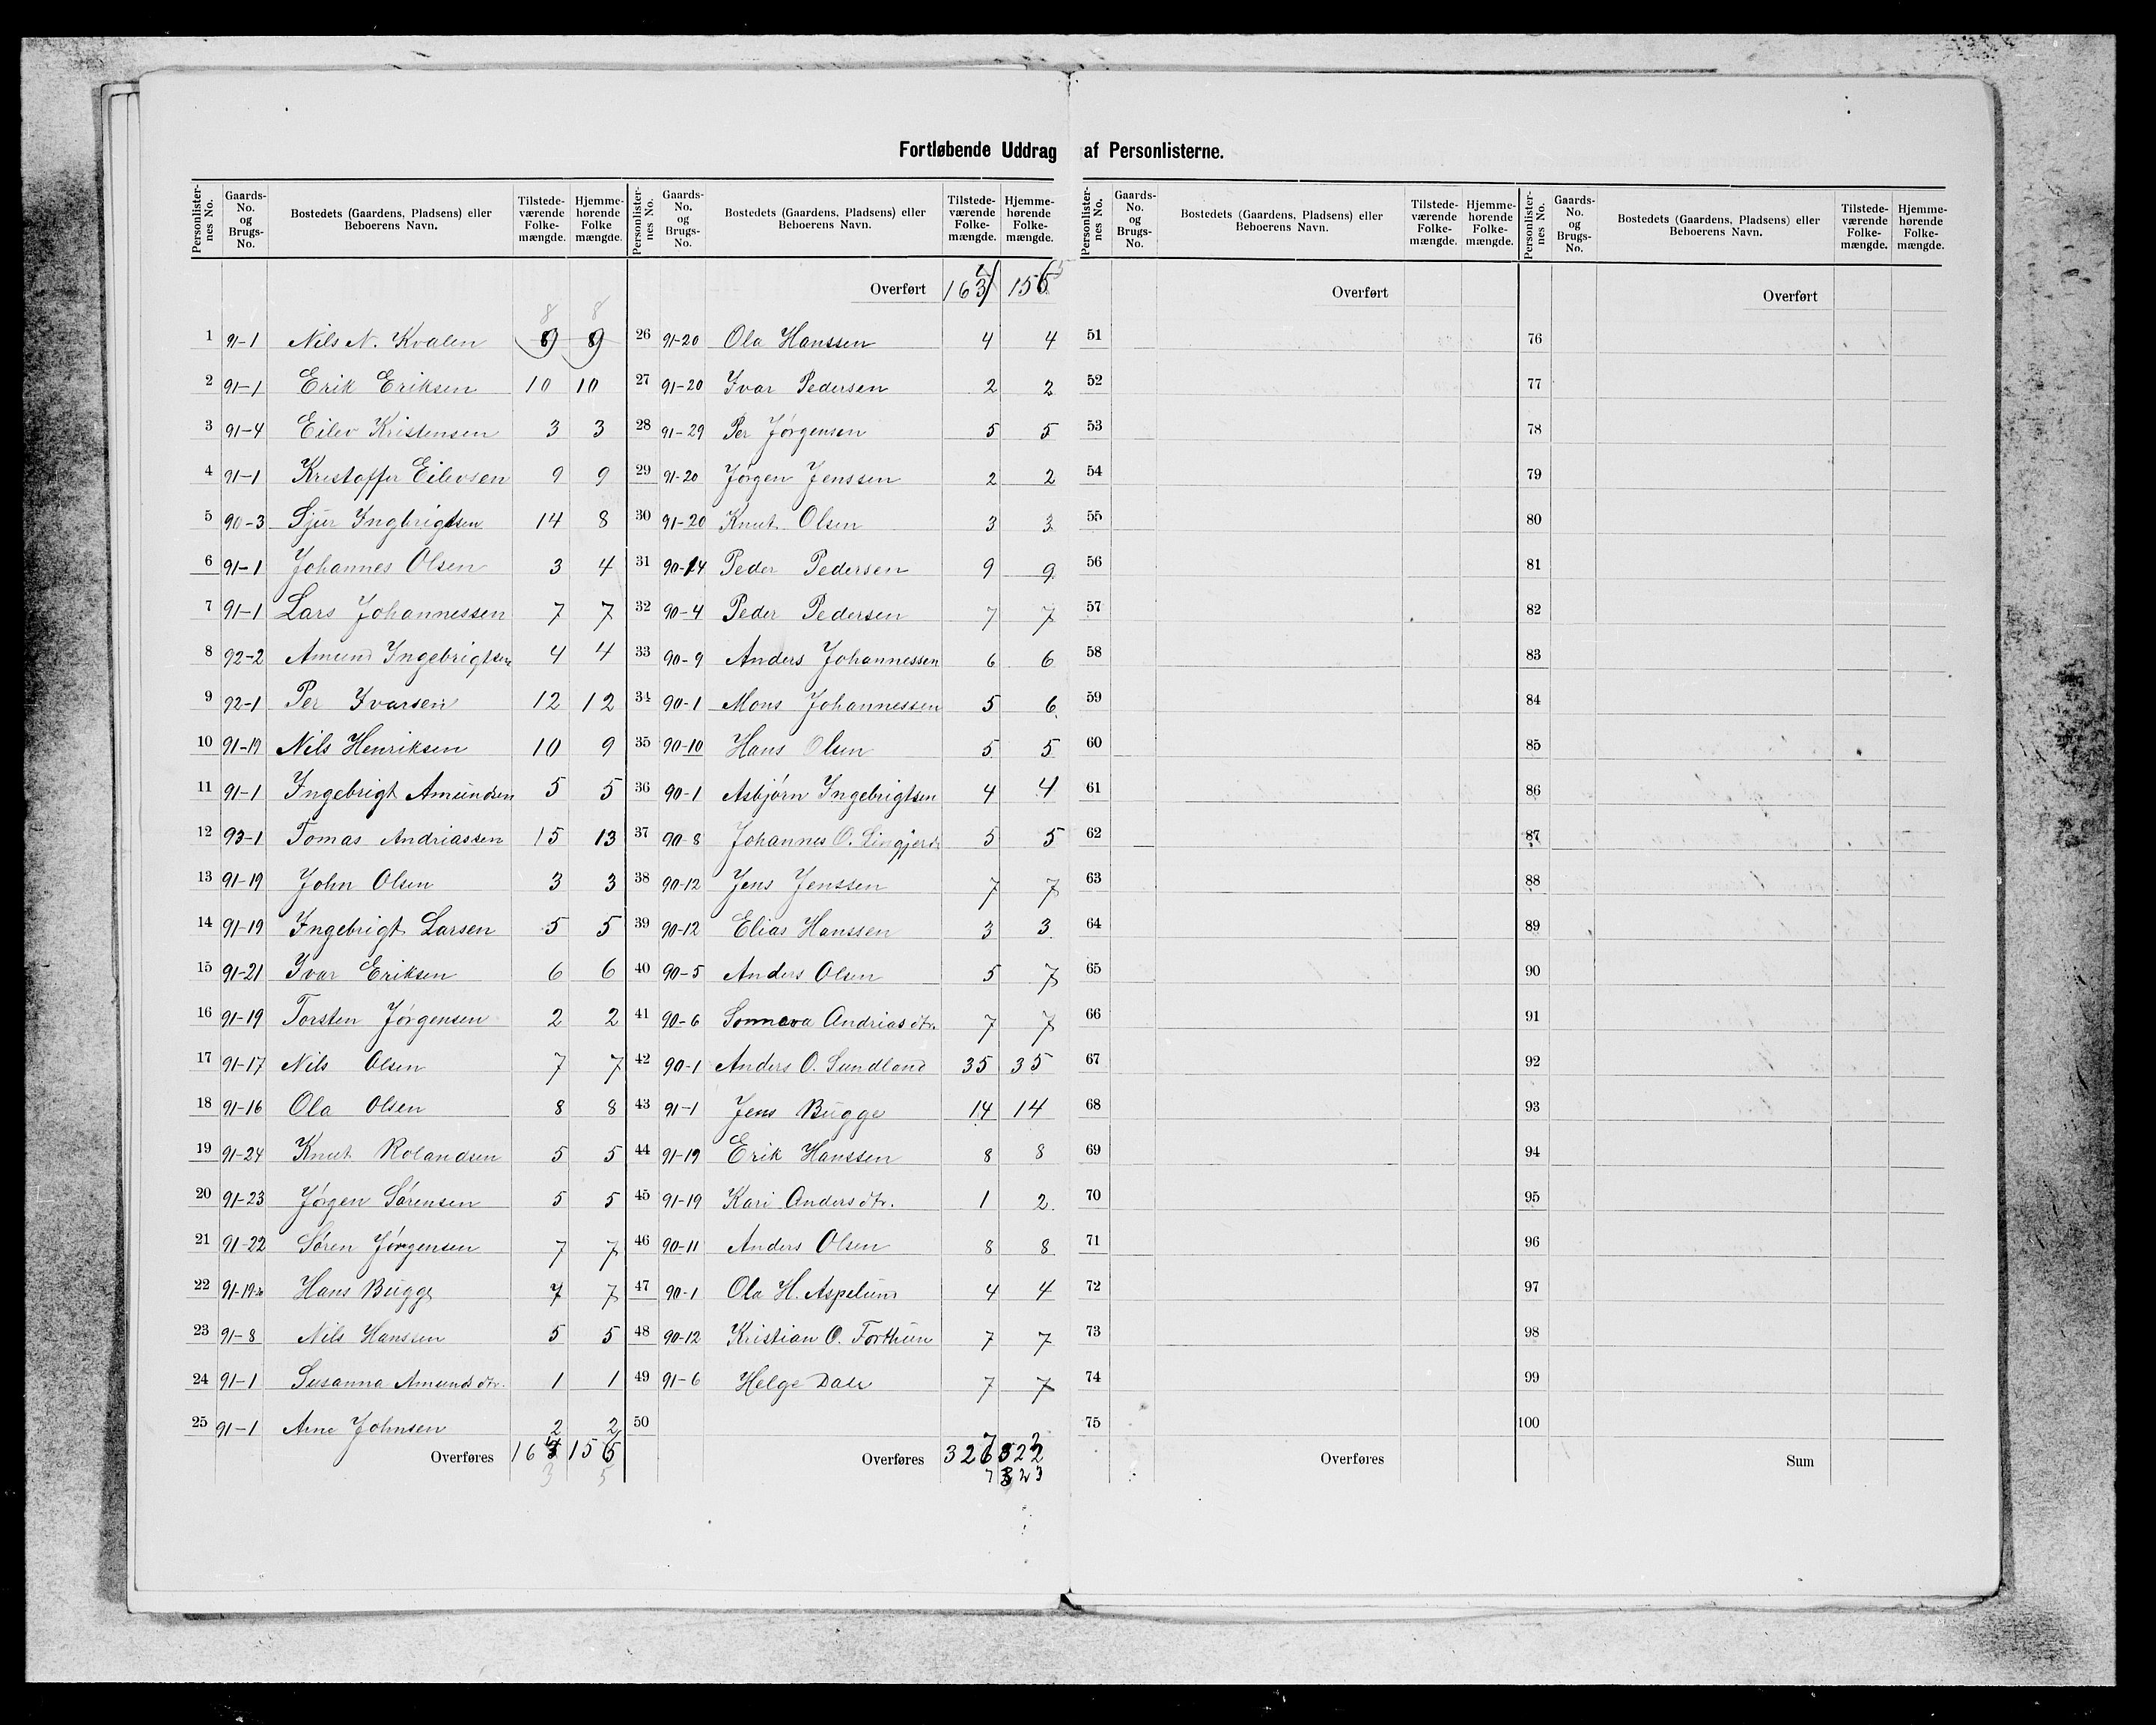 Fortløbende Uddrag af Personlisterne.
Personlister-nes No. | Gaards-No. og Brugs-No. | Bostedets (Gaardens, Pladsens) eller Beboerens Navn. | Tilstede-værende Folke-mængde. | Hjemme-hørende Folke mængde.
1 91-1 Nils N. Kvalen 8 8
2 91-1 Erik Eriksen 10 10
3 91-4 Eilev Kristensen 3 3
4 91-1 Kristoffer Eilevsen 9 9
5 90-3 Sjur Ingbrigtsen 14 8
6 91-1 Johannes Olsen 3 4
7 91-1 Lars Johannessen 7 7
8 92-2 Amund Ingebrigtsen 4 4
9 92-1 Per Ivarsen 12 12
10 91-19 Nils Henriksen 10 9
11 91-1 Ingebrigt Amundsen 5 5
12 93-1 Tomas Andriassen 15 13
13 91-19 John Olsen 3 3
14 91-19 Ingebrigt Larsen 5 5
15 91-21 Ivar Eriksen 6 6
16 91-19 Torsten Jørgensen 2 2
17 91-17 Nils Olsen 7 7
18 91-16 Ola Olsen 8 8
19 91-24 Knut Rolandsen 5 5
20 91-23 Jørgen Sørensen 5 5
21 91-22 Søren Jørgensen 7 7
22 91-19 Hans Bugge 7 7
23 91-8 Nils Hanssen 5 5
24 91-1 Susanna Amundsdtr. 1 1
25 91-1 Arne Johnsen 2 2
Overføres 163 155
Personlister-nes No. | Gaards-No. og Brugs-No. | Bostedets (Gaardens, Pladsens) eller Beboerens Navn. | Tilstede-værende Folke-mængde. | Hjemme-hørende Folke-mængde.
Overført 163 155
26 91-20 Ola Hanssen 4 4
27 91-20 Ivar Pedersen 2 2
28 91-29 Per Jørgensen 5 5
29 91-20 Jørgen Jenssen 2 2
30 91-20 Knut Olsen 3 3
31 90-14 Peder Pedersen 9 9
32 90-4 Peder Pedersen 7 7
33 90-9 Anders Johannessen 6 6
34 90-1 Mons Johannessen 5 6
35 90-10 Hans Olsen 5 5
36 90-1 Asbjørn Ingebrigtsen 4 4
37 90-8 Johannes O. 5 5
38 90-12 Jens Jenssen 7 7
39 90-12 Elias Hanssen 3 3
40 90-5 Anders Olsen 5 7
41 90-6 Sonneva Andriasdtr. 7 7
42 90-1 Anders O. Sundland 35 35
43 91-1 Jens Bugge 14 14
44 91-19 Erik Hanssen 8 8
45 91-19 Kari Andersdtr. 1 2
46 90-11 Anders Olsen 8 8
47 90-1 Ola H. Aspelund 4 4
48 90-12 Kristian O. Forthun 7 7
49 91-6 Helge Dale 7 7
50
Overføres 326 322
7 323
Personlister-nes No. | Gaards-No. og Brugs-No. | Bostedets (Gaardens, Pladsens) eller Beboerens Navn. | Tilstede-værende Folke-mængde. | Hjemme-hørende Folke-mængde.
Overført
51
52
53
54
55
56
57
58
59
60
61
62
63
64
65
66
67
68
69
70
71
72
73
74
75
Overføres
Personlister-nes No. | Gaards-No. og Brugs-No. | Bostedets (Gaardens, Pladsens) eller Beboerens Navn. | Tilstede-værende Folke-mængde. | Hjemme-hørende Folke-mængde.
Overført
76
77
78
79
80
81
82
83
84
85
86
87
88
89
90
91
92
93
94
95
96
97
98
99
100
Sum